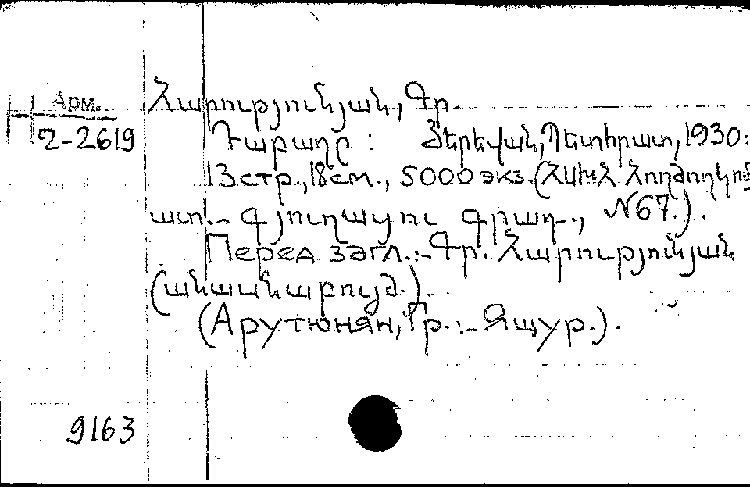 Арм.
2-2619
Հարությունյան, Գր.
Դաբաղը: Յերեվան, Պետհրատ, 1930:
13 стр., 18 см., 5000 экз. (ՀՍԽՀ Հողժողկոմ
ատ.- Գյուղատու գրադ., №67.).
Перед загл.:- Գր. Հարությունյան
(անասնաբույժ.)
(Арутюнян, Гр.:- Ящур.).
9163